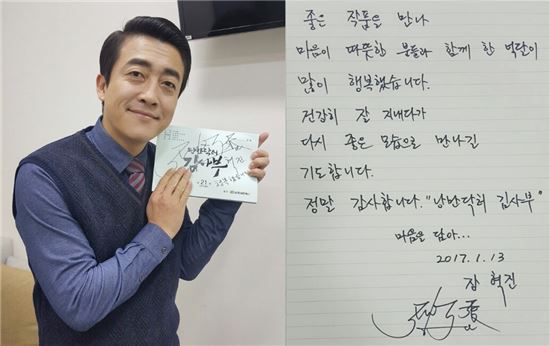 낭만닥터
김사부
좋은 작품을 만나
마음이 따뜻한 분들과 함께 한 넉달이
많이 행복했습니다.
건강히 잘 지내다가
다시 좋은 모습으로 만나길
기도합니다.
정말 감사합니다. "낭만닥터 김사부"
마음을 담아...
2017. 1. 13
장혁진